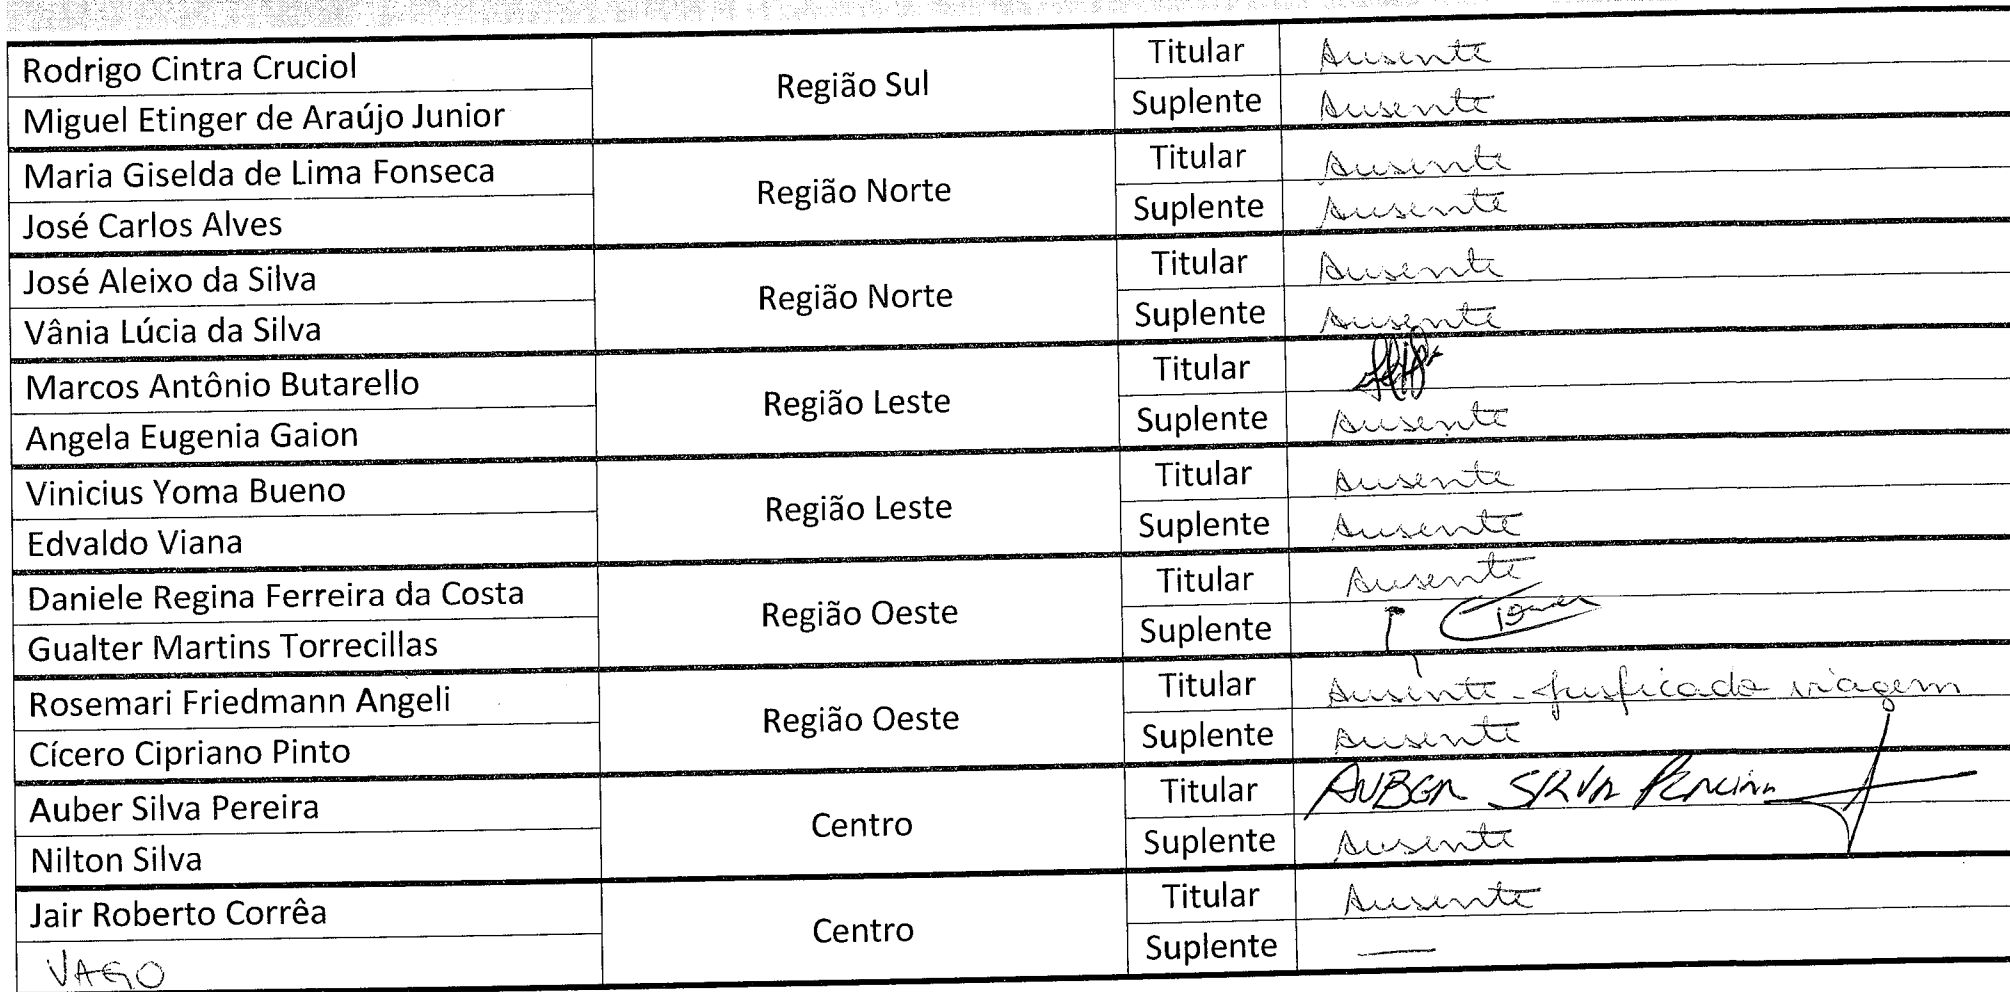 Rodrigo Cintra Cruciol Região Sul Titular Ausente
Miguel Etinger de Araújo Junior Suplente Ausente
Maria Giselda de Lima Fonseca Região Norte Titular Ausente
José Carlos Alves Suplente Ausente
José Aleixo da Silva Região Norte Titular Ausente
Vânia Lúcia da Silva Suplente Ausente
Marcos Antônio Butarello Região Leste Titular
Angela Eugenia Gaion Suplente Ausente
Vinicius Yoma Bueno Região Leste Titular Ausente
Edvaldo Viana Suplente Ausente
Daniele Regina Ferreira da Costa Região Oeste Titular Ausente
Gualter Martins Torrecillas Suplente
Rosemari Friedmann Angeli Região Oeste Titular Ausente - viagem
Cícero Cipriano Pinto Suplente Ausente
Auber Silva Pereira Centro Titular AUBER SILVA Pereira
Nilton Silva Suplente Ausente
Jair Roberto Corrêa Centro Titular Ausente
VAGO Suplente —